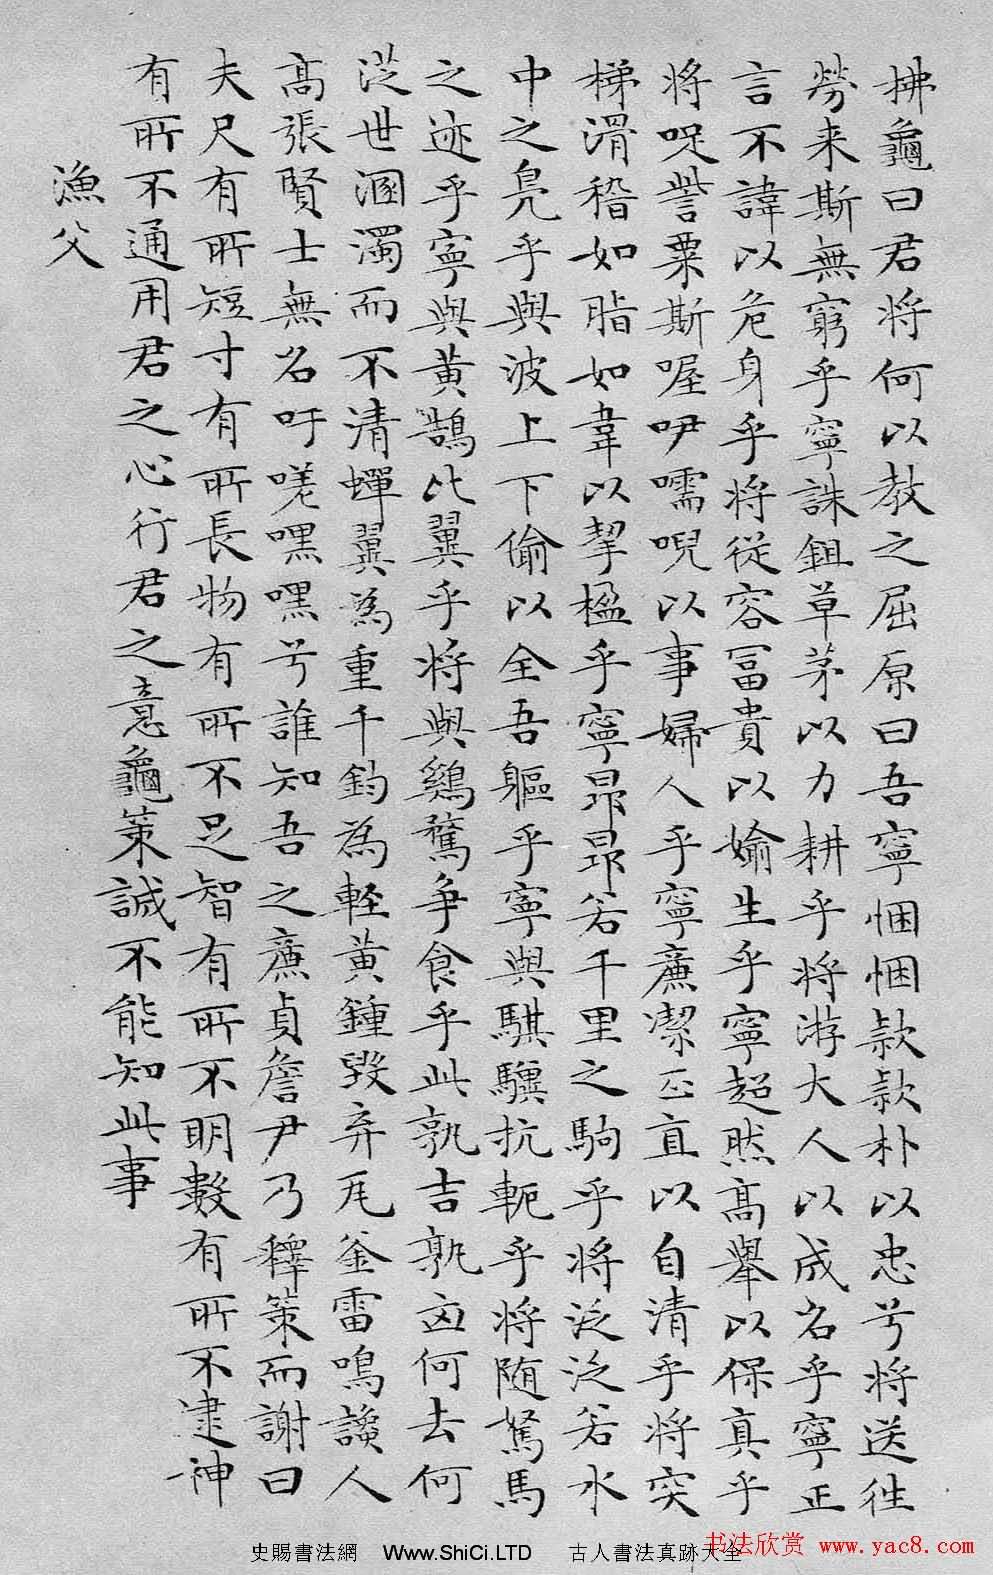 拂龜曰君將何以教之屈原曰吾寧悃悃款款朴以忠兮將送往
勞来斯無窮乎寧誅鉏草茅以力耕乎將游大人以成名乎寧正
言不諱以危身乎將從容冨貴以媮生乎寧超然高舉以保真乎
將哫訾粟斯喔咿嚅唲以事婦人乎寧廉潔正直以自清乎將突
梯滑稽如脂如韋以挈楹乎寧昂昂若千里之駒乎將泛泛若水
中之鳬乎與波上下偷以全吾軀乎寧與騏驥抗軛乎將随駑馬
之迹乎寧與黄鵠比翼乎將與鷄鶩争食乎此孰吉孰凶何去何
從世溷濁而不清蟬翼為重千鈞為輕黄鍾毀弃瓦釜雷鳴讒人
高張賢士無名吁嗟嘿嘿兮誰知吾之廉貞詹尹乃釋策而謝曰
夫尺有所短寸有所長物有所不足智有所不明數有所不逮神
有所不通用君之心行君之意龜策誠不能知此事
漁父
史賜書法網 Www.ShiCi.LTD 古人書法真跡大全
书法欣赏 www.yac8.com